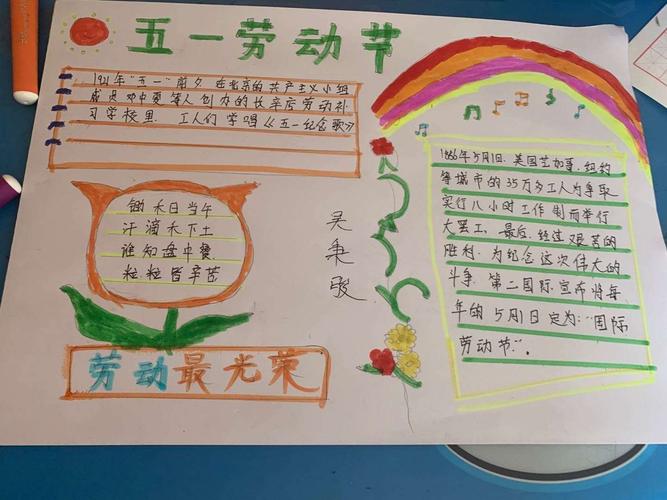 五一劳动节
1921年“五一”前夕,在北京的共产主义小组
成员邓中夏等人创办的长辛店劳动补
习学校里,工人们学唱《五一纪念歌》
锄禾日当午
汗滴禾下土
谁知盘中餐
粒粒皆辛苦
劳动最光荣
吴秉骏
1886年5月1日,美国芝加哥,纽约
等城市的35万多工人为争取
实行八小时工作制而举行
大罢工,最后,经过艰苦的
胜利,为纪念这次伟大的
斗争,第二国际宣布将每
年的5月1日定为:“国际
劳动节”。